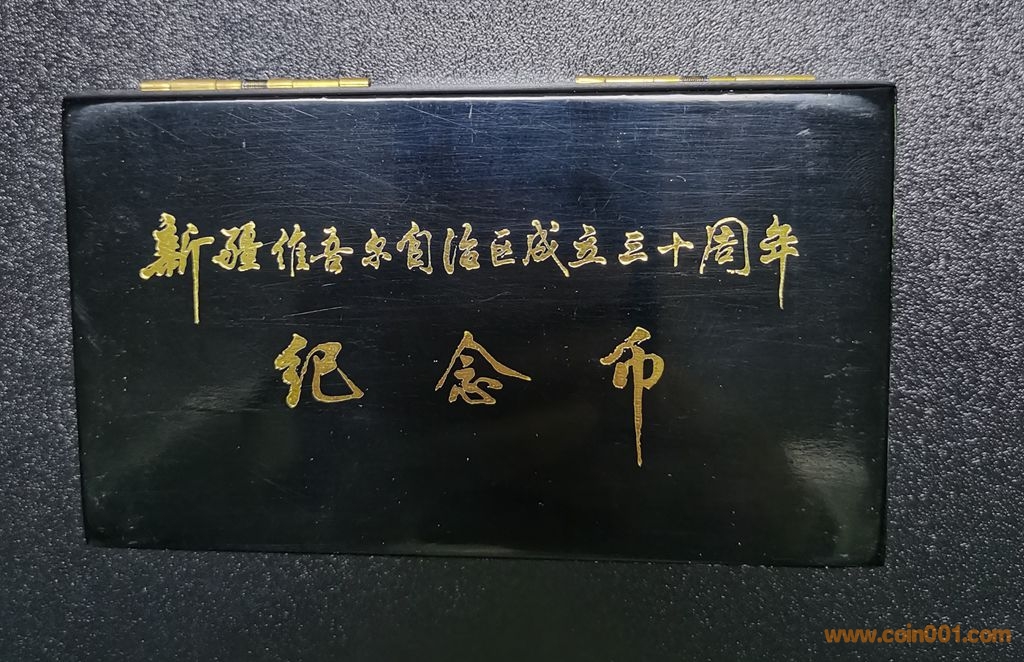 新疆维吾尔自治区成立三十周年
纪念币
www.coin001.com